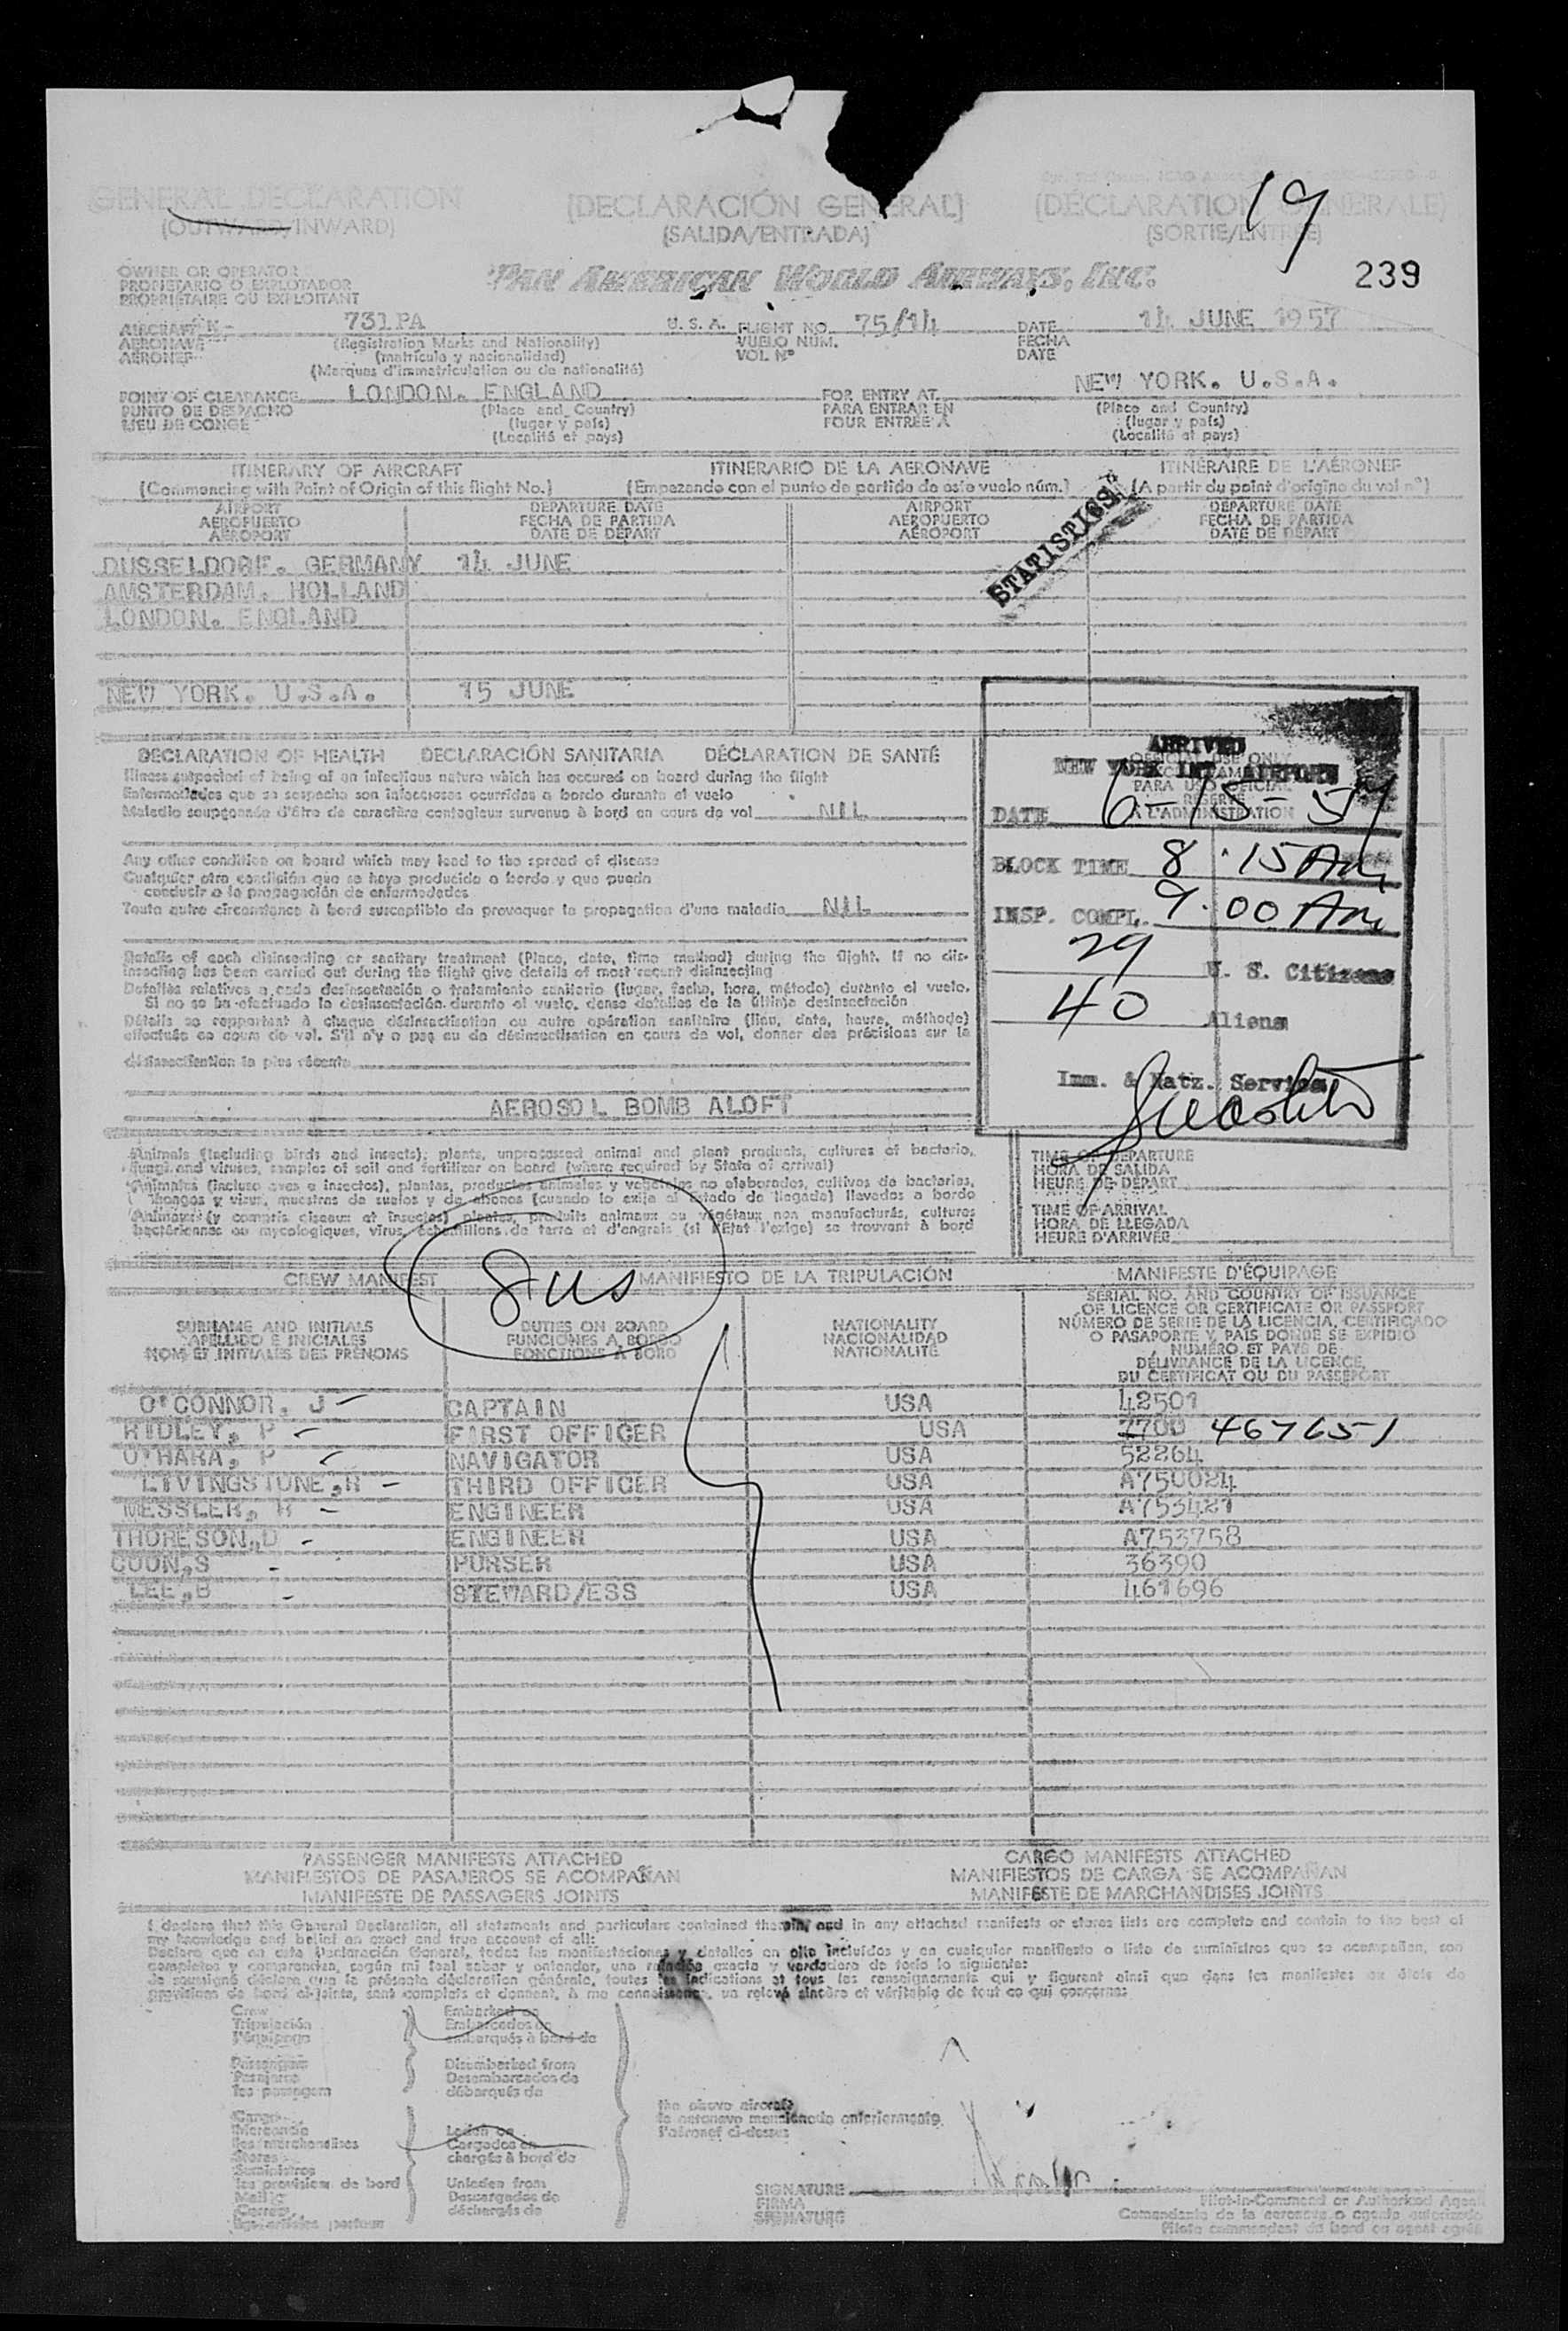 19
GENERAL DECLARATION [DECLARACIÓN GENERAL] [DÉCLARATION GÉNÉRALE]
(OUTWARD/INWARD) (SALIDA/ENTRADA) (SORTIE/ENTRÉE)
239
OWNER OR OPERATOR PAN AMERICAN WORLD AIRWAYS, INC.
PROPIETARIO O EXPLOTADOR
PROPRIÉTAIRE OU EXPLOITANT
AIRCRAFT N- 731PA U.S.A. FLIGHT NO. 75/14 DATE 14 JUNE 1957
AERONAVE (Registration Marks and Nationality) VUELO NUM. FECHA
AÉRONEF (matrícula y nacionalidad) VOL Nº DATE
(Marques d'immatriculation ou de nationalité)
POINT OF CLEARANCE LONDON. ENGLAND FOR ENTRY AT NEW YORK. U.S.A.
PUNTO DE DESPACHO (Place and Country) PARA ENTRAR EN (Place and Country)
LIEU DE CONGÉ (lugar y país) POUR ENTRÉE À (lugar y país)
(Localité et pays) (Localité et pays)
ITINERARY OF AIRCRAFT ITINERARIO DE LA AERONAVE ITINÉRAIRE DE L'AÉRONEF
(Commencing with Point of Origin of this flight No.) (Empezando con el punto de partida de este vuelo núm.) (A partir du point d'origine du vol nº)
AIRPORT DEPARTURE DATE AIRPORT DEPARTURE DATE
AEROPUERTO FECHA DE PARTIDA AEROPUERTO FECHA DE PARTIDA
AÉROPORT DATE DE DÉPART AÉROPORT DATE DE DÉPART
STATISTICS
DUSSELDORF. GERMANY 14 JUNE
AMSTERDAM. HOLLAND
LONDON. ENGLAND
NEW YORK. U.S.A. 15 JUNE
DECLARATION OF HEALTH DECLARACIÓN SANITARIA DÉCLARATION DE SANTÉ
Illness suspected of being of an infectious nature which has occured on board during the flight
Enfermedades que se sospecha son infecciosas ocurridas a bordo durante el vuelo
Maladie soupçonnée d'être de caractère contagieux survenue à bord en cours de vol NIL
Any other condition on board which may lead to the spread of disease
Cualquier otra condición que se haya producido a bordo y que pueda
conducir a la propagación de enfermedades
Toute autre circonstance à bord susceptible de provoquer la propagation d'une maladie NIL
Details of each disinsecting or sanitary treatment (Place, date, time method) during the flight. If no dis-
insecting has been carried out during the flight give details of most recent disinsecting
Detalles relativos a cada desinsectación o tratamiento sanitario (lugar, fecha, hora, método) durante el vuelo.
Si no se ha efectuado la desinsectación durante el vuelo, dense detalles de la última desinsectación
Détails se rapportant à chaque désinsectisation ou autre opération sanitaire (lieu, date, heure, méthode)
effectuée au cours de vol. S'il n'y a pas eu de désinsectisation en cours de vol, donner des précisions sur la
désinsectisation la plus récente
AEROSOL BOMB ALOFT
ARRIVED
NEW YORK INT. AIRPORT
OFFICIAL USE ONLY
PARA USO OFICIAL
RÉSERVÉ
À L'ADMINISTRATION
DATE 6-15-57
BLOCK TIME 8:15 AM
INSP. COMPL. 9:00 AM
29 U. S. Citizens
40 Aliens
Imm. & Natz. Service
Animals (including birds and insects); plants, unprocessed animal and plant products, cultures of bacteria,
fungi and viruses, samples of soil and fertilizer on board (where required by State of arrival)
Animales (incluso aves e insectos), plantas, productos animales y vegetales no elaborados, cultivos de bacterias,
hongos y virus, muestras de suelos y de abonos (cuando lo exija el estado de llegada) llevados a bordo
Animaux (y compris oiseaux et insectes) plantes, produits animaux ou végétaux non manufacturés, cultures
bactériennes ou mycologiques, virus, échantillons de terre et d'engrais (si l'État l'exige) se trouvant à bord
TIME OF DEPARTURE
HORA DE SALIDA
HEURE DE DÉPART
TIME OF ARRIVAL
HORA DE LLEGADA
HEURE D'ARRIVÉE
8 us
CREW MANIFEST MANIFIESTO DE LA TRIPULACIÓN MANIFESTE D'ÉQUIPAGE
SURNAME AND INITIALS DUTIES ON BOARD NATIONALITY SERIAL NO. AND COUNTRY OF ISSUANCE
APELLIDO E INICIALES FUNCIONES A BORDO NACIONALIDAD OF LICENCE OR CERTIFICATE OR PASSPORT
NOM ET INITIALES DES PRÉNOMS FONCTIONS À BORD NATIONALITÉ NÚMERO DE SERIE DE LA LICENCIA, CERTIFICADO
O PASAPORTE Y PAÍS DONDE SE EXPIDIÓ
NUMÉRO ET PAYS DE
DÉLIVRANCE DE LA LICENCE,
DU CERTIFICAT OU DU PASSEPORT
O'CONNOR, J CAPTAIN USA 42501
RIDLEY, P FIRST OFFICER USA 7700 467651
O'HARA, P NAVIGATOR USA 52264
LIVINGSTONE,R THIRD OFFICER USA A750024
MESSLER, R ENGINEER USA A753421
THORESON,D ENGINEER USA A753758
COON,S PURSER USA 36390
LEE,B STEWARD/ESS USA 461696
PASSENGER MANIFESTS ATTACHED CARGO MANIFESTS ATTACHED
MANIFIESTOS DE PASAJEROS SE ACOMPAÑAN MANIFIESTOS DE CARGA SE ACOMPAÑAN
MANIFESTE DE PASSAGERS JOINTS MANIFESTE DE MARCHANDISES JOINTS
I declare that this General Declaration, all statements and particulars contained therein, and in any attached manifests or stores lists are complete and contain to the best of
my knowledge and belief an exact and true account of all:
Declaro que en esta Declaración General, todas las manifestaciones y detalles en ella incluídos y en cualquier manifiesto o lista de suministros que se acompañan, son
completos y comprenden, según mi leal saber y entender, una relación exacta y verdadera de todo lo siguiente:
Je soussigné déclare que la présente déclaration générale, toutes les indications et tous les renseignements qui y figurent ainsi que dans les manifestes ou états de
provisions de bord ci-joints, sont complets et donnent, à ma connaissance, un relevé sincère et véritable de tout ce qui concerne:
Crew Embarked on
Tripulación Embarcados en
l'équipage embarqués à bord de
Passengers Disembarked from
Pasajeros Desembarcados de
les passagers débarqués de
Cargo the above aircraft
Mercancía Laden on la aeronave mencionada anteriormente
les marchandises Cargados en l'aéronef ci-dessus
Stores chargés à bord de
Suministros
les provisions de bord Unladen from
Mail Descargados de
Correo déchargés de
les articles postaux
SIGNATURE Pilot-in-Command or Authorized Agent
FIRMA Comandante de la aeronave o agente autorizado
SIGNATURE Pilote commandant de bord ou agent agréé